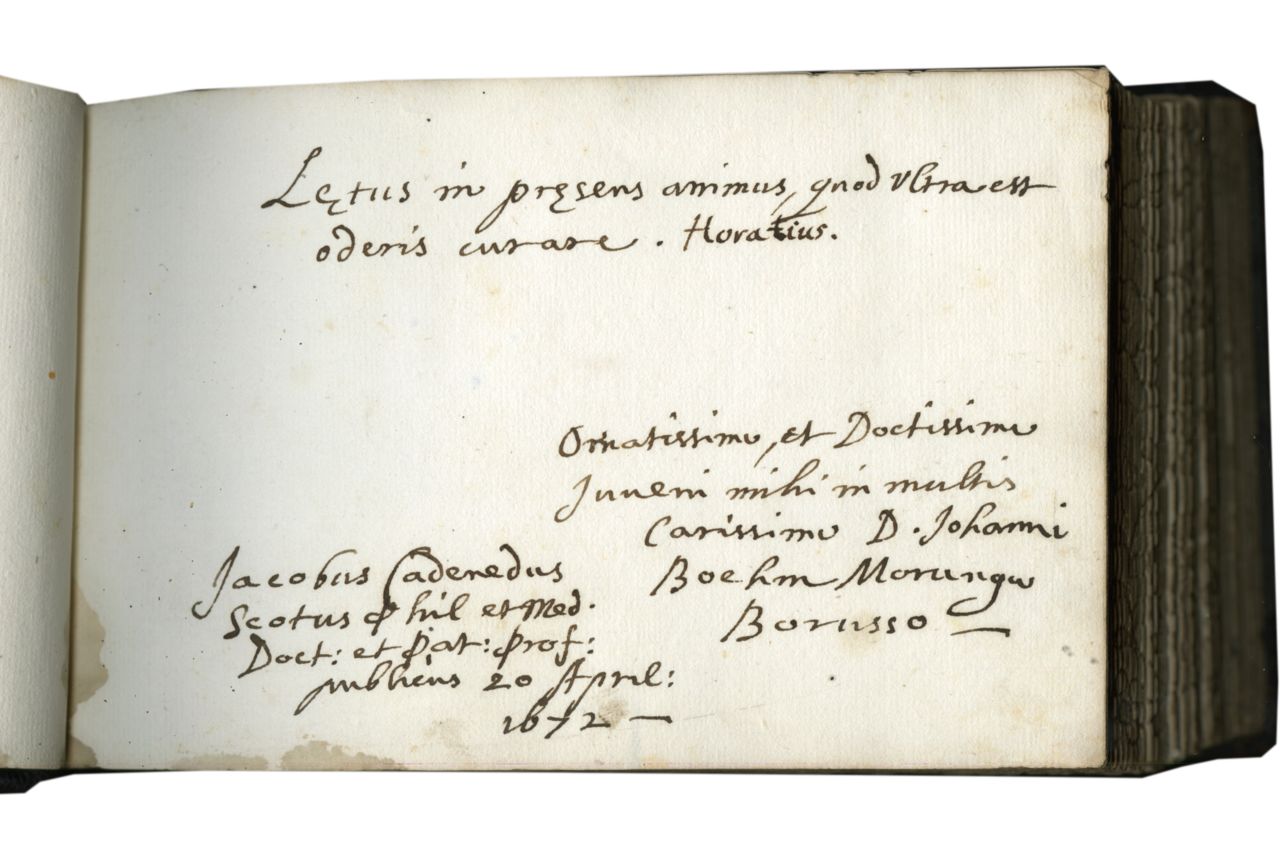 Lętus in pręsens animus, quod ultra est
oderis curare. Horatius.
Ornatissimo, et Doctissimo
Juveni mihi in multis
Carissimo D. Johanni
Boehm Morungo
Borusso —
Jacobus Cadenedus
Scotus Phil et Med.
Doct: et Pat: Prof:
publicus 20 April:
1672 —